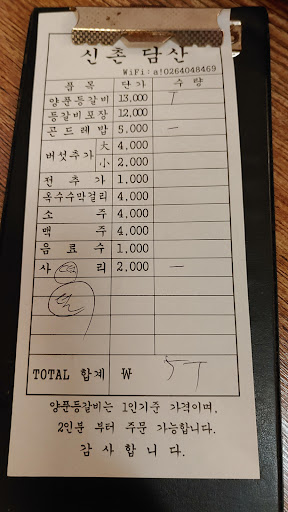 신촌 담산
WiFi: a!0264048469
품 목 단가 수 량
양푼등갈비 13,000 T
등갈비포장 12,000
곤드레밥 5,000 一
버섯추가 大 4,000
小 2,000
전 추 가 1,000
옥수수막걸리 4,000
소 주 4,000
맥 주 4,000
음 료 수 1,000
사 리 2,000 一
TOTAL 합계 ₩
양푼등갈비는 1인기준 가격이며,
2인분 부터 주문 가능합니다.
감 사 합 니 다.